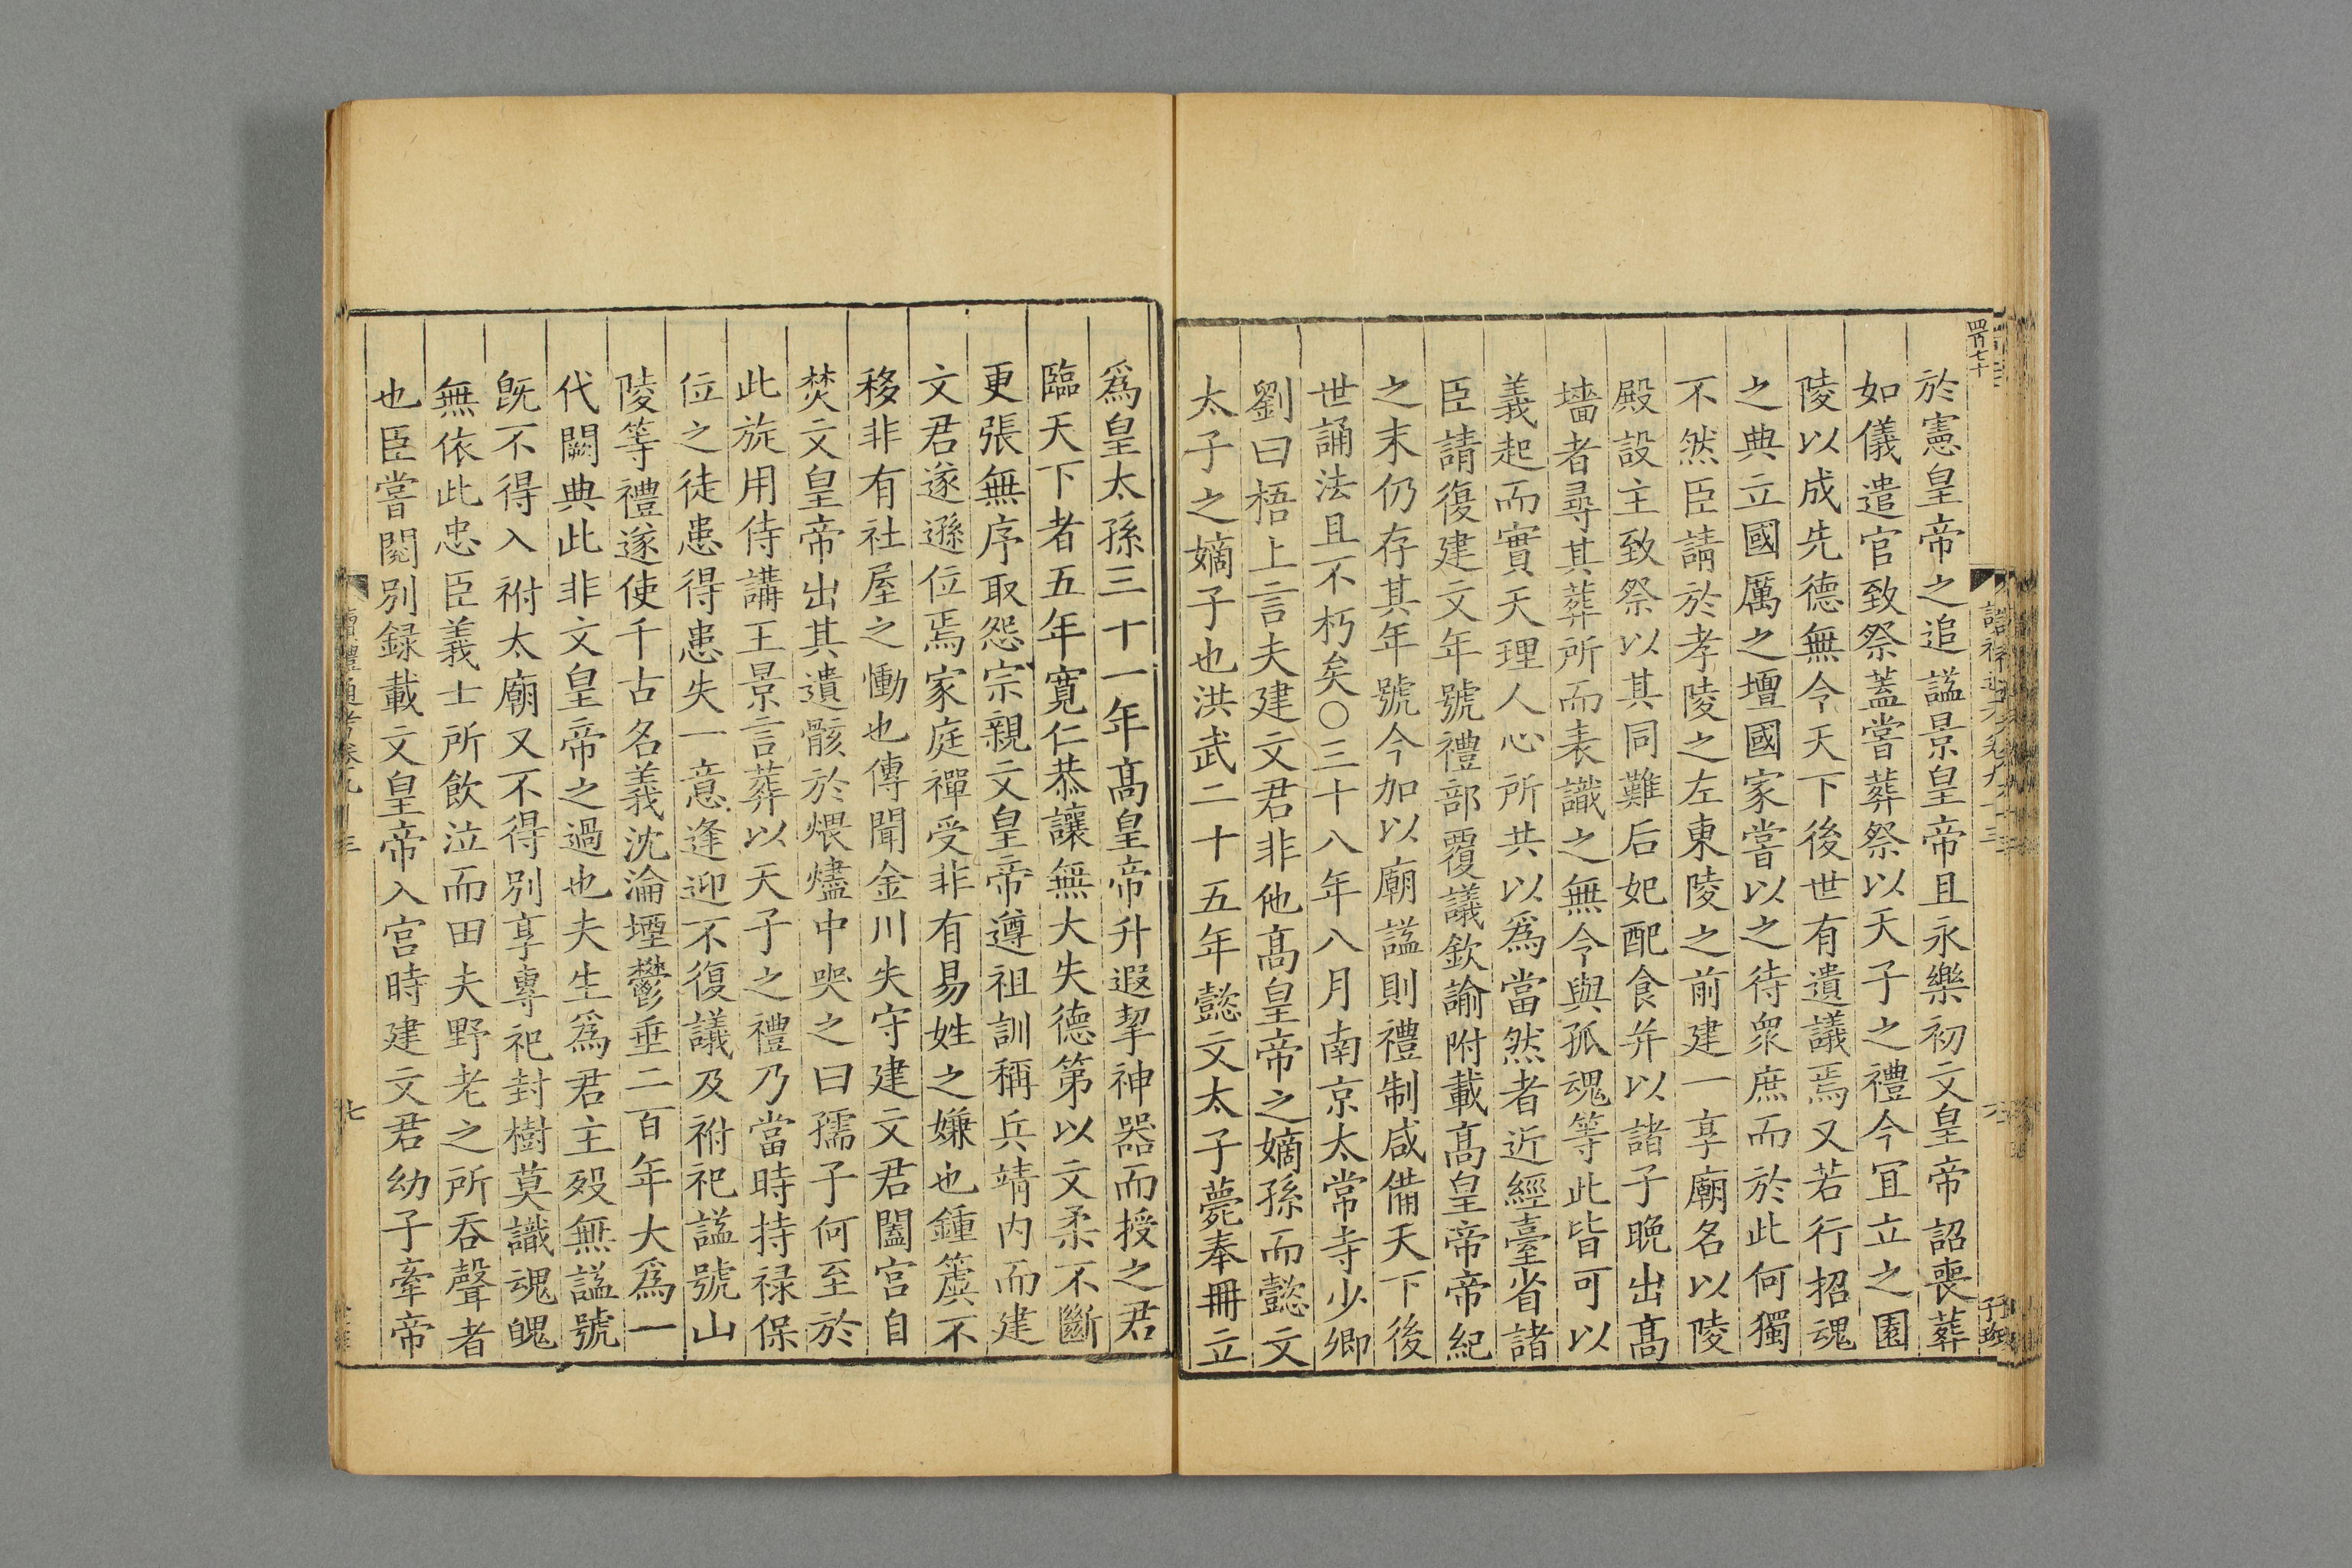 四百七十
於憲皇帝之追諡景皇帝且永樂初文皇帝詔喪葬
如儀遣官致祭蓋嘗葬祭以天子之禮今宜立之園
陵以成先德無令天下後世有遺議焉又若行招魂
之典立國厲之壇國家嘗以之待衆庶而於此何獨
不然臣請於孝陵之左東陵之前建一享廟名以陵
殿設主致祭以其同難后妃配食并以諸子晚出髙
墻者尋其葬所而表識之無令與孤魂等此皆可以
義起而實天理人心所共以爲當然者近經臺省諸
臣請復建文年號禮部覆議欽諭附載髙皇帝帝紀
之末仍存其年號今加以廟諡則禮制咸備天下後
世誦法且不朽矣〇三十八年八月南京太常寺少卿
劉曰梧上言夫建文君非他髙皇帝之嫡孫而懿文
太子之嫡子也洪武二十五年懿文太子薨奉冊立
爲皇太孫三十一年髙皇帝升遐挈神器而授之君
臨天下者五年寛仁恭讓無大失德第以文柔不斷
更張無序取怨宗親文皇帝遵祖訓稱兵靖内而建
文君遂遜位焉家庭禪受非有易姓之嫌也鍾簴不
移非有社屋之慟也傳聞金川失守建文君闔宫自
焚文皇帝出其遺骸於煨燼中哭之曰孺子何至於
此旋用侍講王景言葬以天子之禮乃當時持禄保
位之徒患得患失一意逢迎不復議及祔祀諡號山
陵等禮遂使千古名義沈淪堙鬱垂二百年大爲一
代闕典此非文皇帝之過也夫生爲君主殁無諡號
既不得入祔太廟又不得別享專祀封樹莫識魂魄
無依此忠臣義士所飲泣而田夫野老之所吞聲者
也臣嘗閱別録載文皇帝入宫時建文君幼子牽帝
七